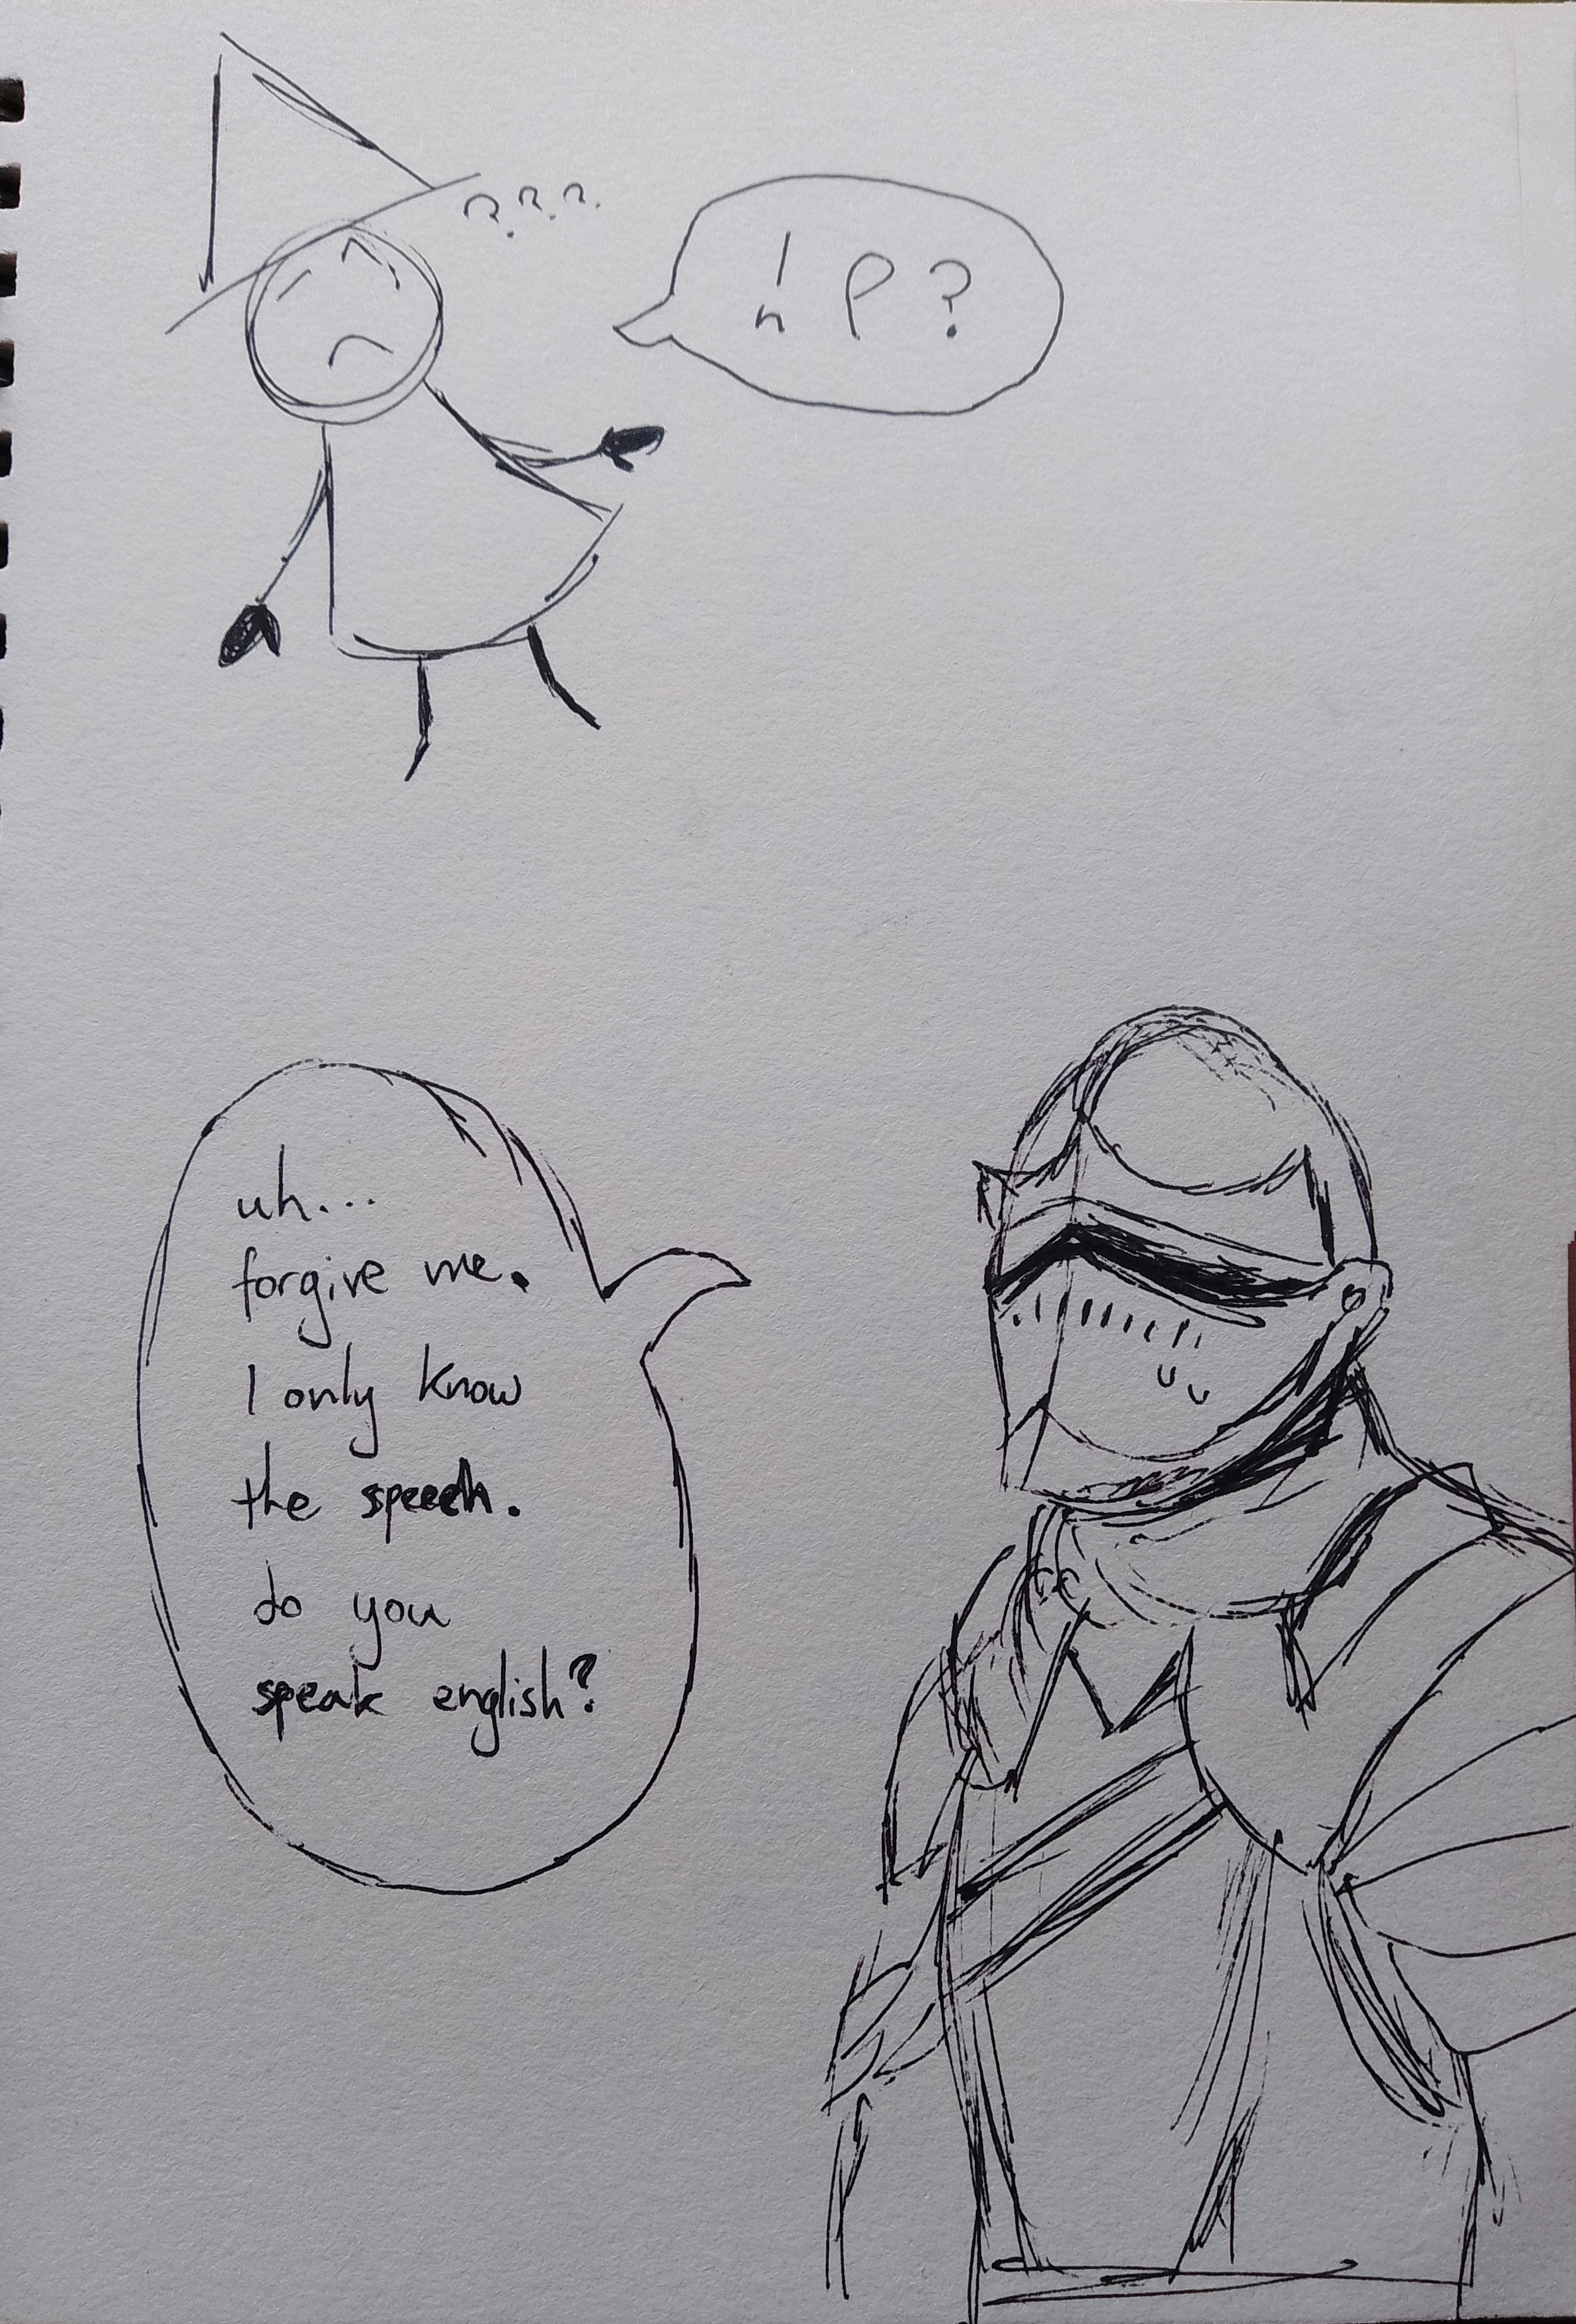 ???
?
uh...
forgive me.
I only know
the speech.
do you
speak english?